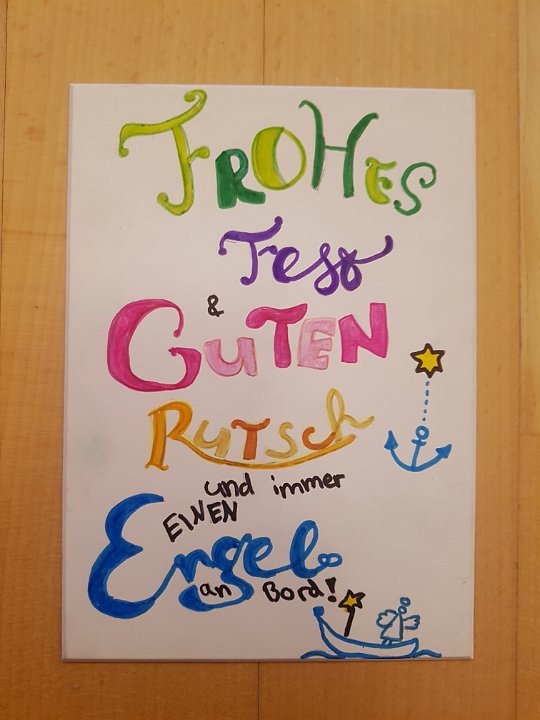 FROHES
Fest
&
GUTEN
RUTSCH
und immer
EINEN
Engel
an Bord!